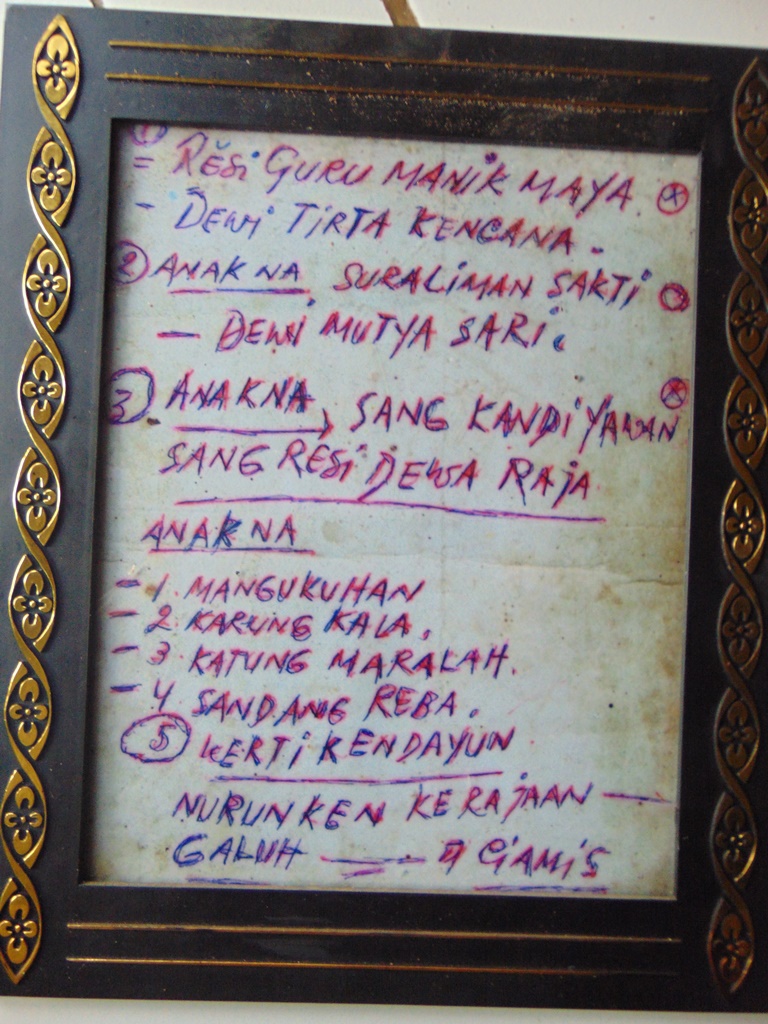 ①
= RESI GURU MANIK MAYA.
- DEWI TIRTA KENCANA.
② ANAK NA, SURALIMAN SAKTI
— DEWI MUTYA SARI.
③ ANAKNA, SANG KANDIYAWAN
SANG RESI DEWA RAJA
ANAK NA
- 1. MANGUKUHAN
- 2 KARUNG KALA.
- 3 KATUNG MARALAH.
- 4 SANDANG REBA.
⑤ WERTI KENDAYUN
NURUNKEN KERAJAAN —
GALUH — CIAMIS